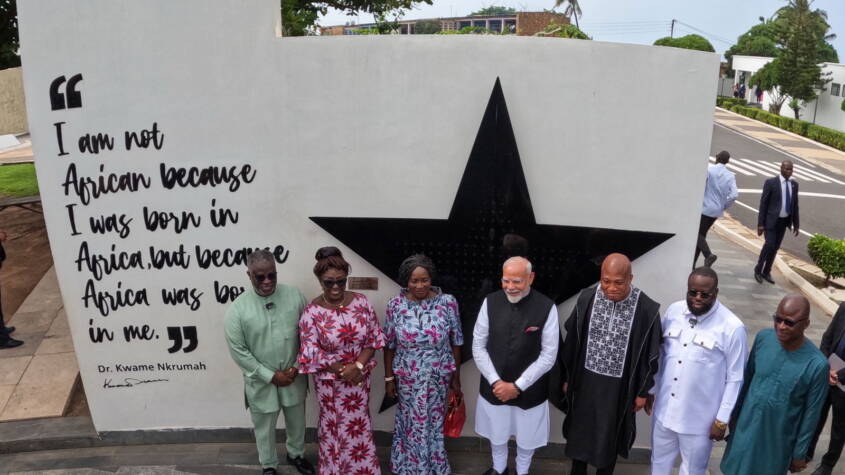 “
I am not
African because
I was born in
Africa, but because
Africa was bo
in me. ”
Dr. Kwame Nkrumah